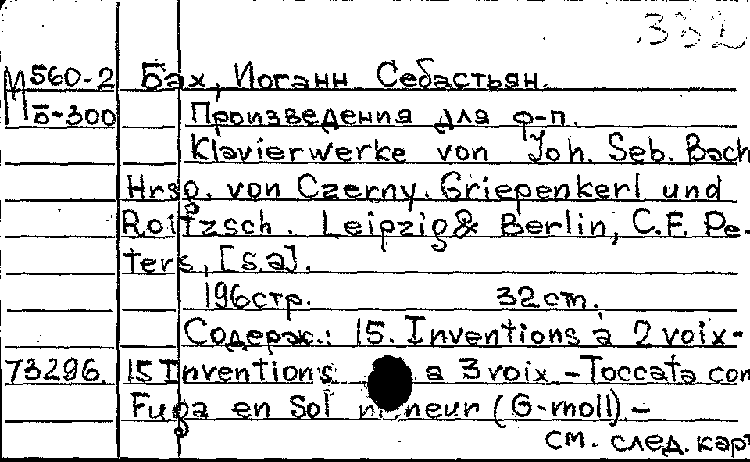 332
М 560-2 Бах, Иоганн Себастьян.
Б-300 Произведения для ф-п.
Klavierwerke von Joh. Seb. Bach
Hrsg. von Czerny. Griepenkerl und
Roitzsch. Leipzig & Berlin, C.F. Pe-
ters, [s.a].
196стр. 32 cm.
Содерж.: 15. Inventions à 2 voix-
73296. 15 Inventions a 3 voix - Toccata con
Fuga en Sol mineur (G-moll). -
см. след. карт